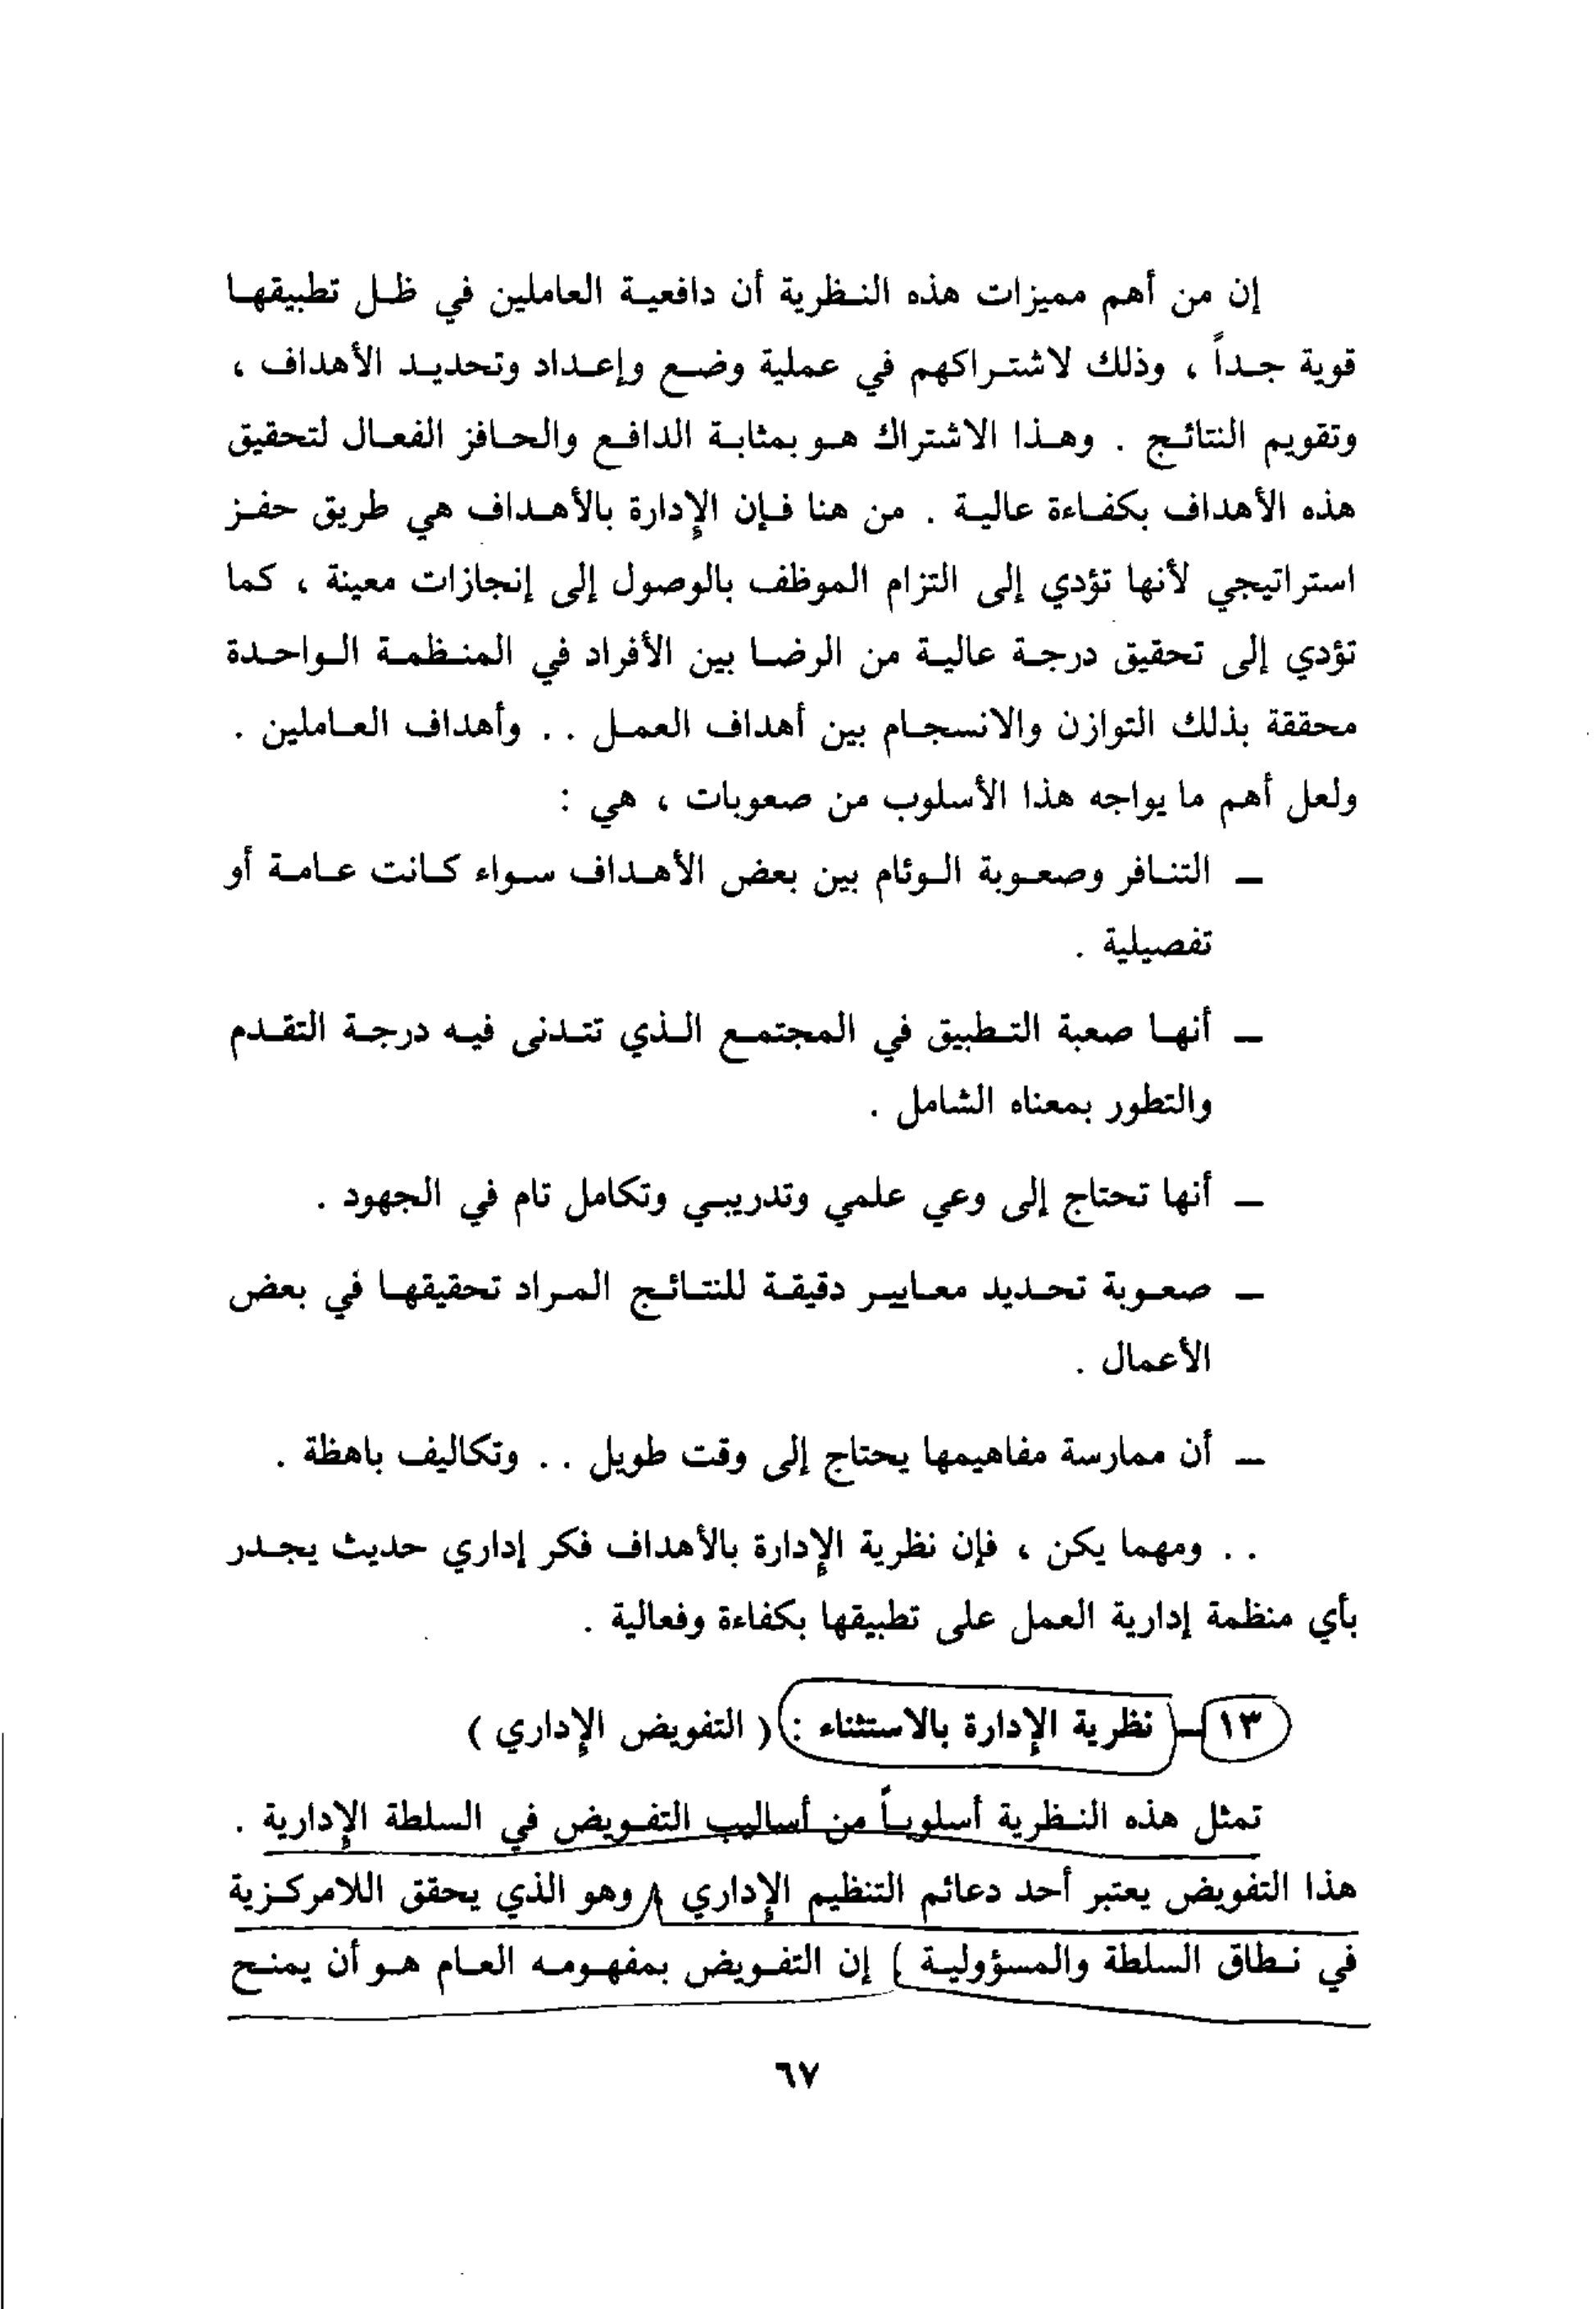 إن من أهم مميزات هذه النظرية أن دافعية العاملين في ظل تطبيقها
قوية جداً ، وذلك لاشتراكهم في عملية وضع وإعداد وتحديد الأهداف ،
وتقويم النتائج . وهذا الاشتراك هو بمثابة الدافع والحافز الفعال لتحقيق
هذه الأهداف بكفاءة عالية . من هنا فإن الإدارة بالأهداف هي طريق حفز
استراتيجي لأنها تؤدي إلى التزام الموظف بالوصول إلى إنجازات معينة ، كما
تؤدي إلى تحقيق درجة عالية من الرضا بين الأفراد في المنظمة الواحدة
محققة بذلك التوازن والانسجام بين أهداف العمل . . وأهداف العاملين .
ولعل أهم ما يواجه هذا الأسلوب من صعوبات ، هي :
– التنافر وصعوبة الوئام بين بعض الأهداف سواء كانت عامة أو
تفصيلية .
– أنها صعبة التطبيق في المجتمع الذي تتدنى فيه درجة التقدم
والتطور بمعناه الشامل .
– أنها تحتاج إلى وعي علمي وتدريبي وتكامل تام في الجهود .
– صعوبة تحديد معايير دقيقة للنتائج المراد تحقيقها في بعض
الأعمال .
– أن ممارسة مفاهيمها يحتاج إلى وقت طويل . . وتكاليف باهظة .
. . ومهما يكن ، فإن نظرية الإدارة بالأهداف فكر إداري حديث يجدر
بأي منظمة إدارية العمل على تطبيقها بكفاءة وفعالية .
١٣ – نظرية الإدارة بالاستثناء : ( التفويض الإداري )
تمثل هذه النظرية أسلوباً من أساليب التفويض في السلطة الإدارية .
هذا التفويض يعتبر أحد دعائم التنظيم الإداري وهو الذي يحقق اللامركزية
في نطاق السلطة والمسؤولية إن التفويض بمفهومه العام هو أن يمنح
٦٧